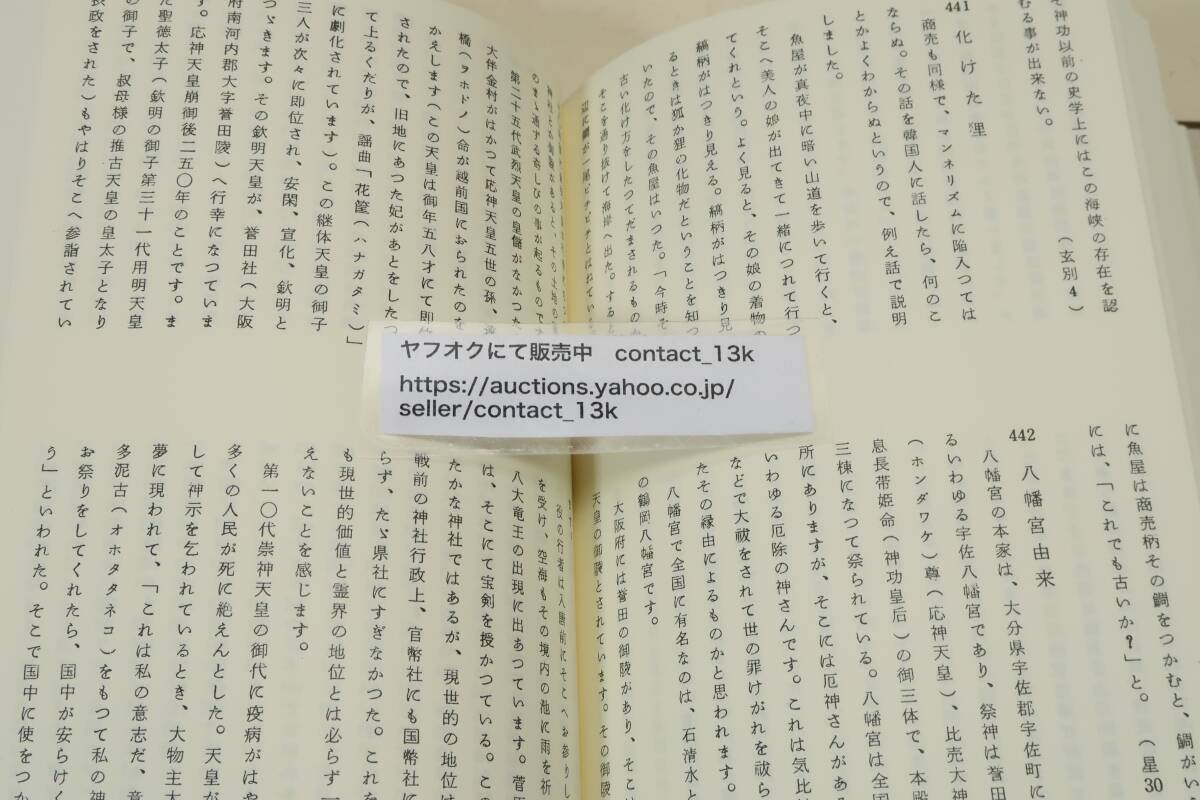 そ神功以前の史学上にはこの海峡の存在を認
むる事が出来ない。
(玄別4)
441 化けた狸
商売も同様で、マンネリズムに陥入つては
ならぬ。その話を韓国人に話したら、何のこ
とかよくわからぬというので、例え話で説明
しました。
魚屋が真夜中に暗い山道を歩いて行くと、
そこへ美人の娘が出てきて一緒につれて行つ
てくれという。よく見ると、その娘の着物の
縞柄がはつきり見える。縞柄がはつきり見
るときは狐か狸の化物だということを知つ
いたので、その魚屋はいつた。「今時そ
古い化け方をしたつてだまされるものか
そこを通り抜けて海岸へ出た。すると
に魚屋は商売柄その鯛をつかむと、鯛がい
には、「これでも古いか?」と。
(星30
442 八幡宮由来
八幡宮の本家は、大分県宇佐郡宇佐町に
るいわゆる宇佐八幡宮であり、祭神は誉田
(ホンダワケ)尊(応神天皇)、比売大神
息長帯姫命(神功皇后)の御三体で、本殿
三棟になつて祭られている。八幡宮は全国
所にありますが、そこには厄神さんがある
いわゆる厄除の神さんです。これは気比
などで大祓をされて世の罪けがれを祓ら
たその縁由によるものかと思われます。
八幡宮で全国に有名なのは、石清水と
の鶴岡八幡宮です。
大阪府には誉田の御陵があり、そこ
天皇の御陵とされています。その御陵
のまゝ通ずる奇しびの事が起るもので
第二十五代武烈天皇の皇儲がなかつた
大伴金村がはかつて応神天皇五世の孫、
橋(ヲホドノ)命が越前国におられたのを
かえします(この天皇は御年五八才にて即
されたので、旧地にあつた妃があとをしたつ
て上るくだりが、謡曲「花筐(ハナガタミ)」
に劇化されています)。この継体天皇の御子
三人が次々に即位され、安閑、宣化、欽明と
つゞきます。その欽明天皇が、誉田社(大阪
府南河内郡大字誉田陵)へ行幸になつていま
す。応神天皇崩御後二五〇年のことです。ま
た聖徳太子(欽明の御子第三十一代用明天皇
の御子で、叔母様の推古天皇の皇太子となり
政をされた)もやはりそこへ参詣されてい
役の行者は入唐前にそこへお参りし
を受け、空海もその境内の池に雨を祈
八大竜王の出現に出あつています。菅
は、そこにて宝剣を授かつている。こ
たかな神社ではあるが、現世的の地位は
戦前の神社行政上、官幣社にも国幣社に
らず、たゞ県社にすぎなかつた。これを
も現世的価値と霊界の地位とは必らず一
えないことを感じます。
第一〇代崇神天皇の御代に疫病がはや
多くの人民が死に絶えんとした。天皇が
して神示を乞われているとき、大物主大
夢に現われて、「これは私の意志だ、意
多泥古(オホタタネコ)をもつて私の神
お祭りをしてくれたら、国中が安らけく
う」といわれた。そこで国中に使をつか
ヤフオクにて販売中 contact_13k
https://auctions.yahoo.co.jp/
seller/contact_13k